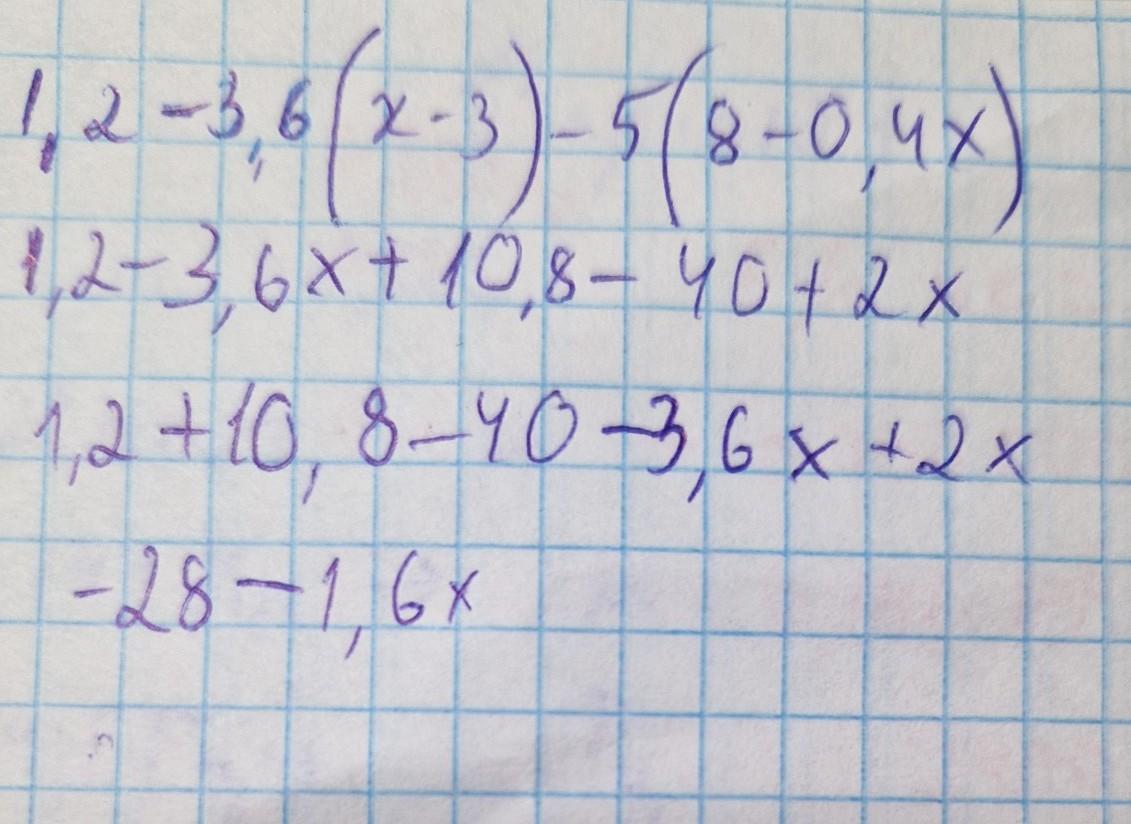 1,2-3,6(x-3)-5(8-0,4x)
1,2-3,6x+10,8-40+2x
1,2+10,8-40-3,6x+2x
-28-1,6x